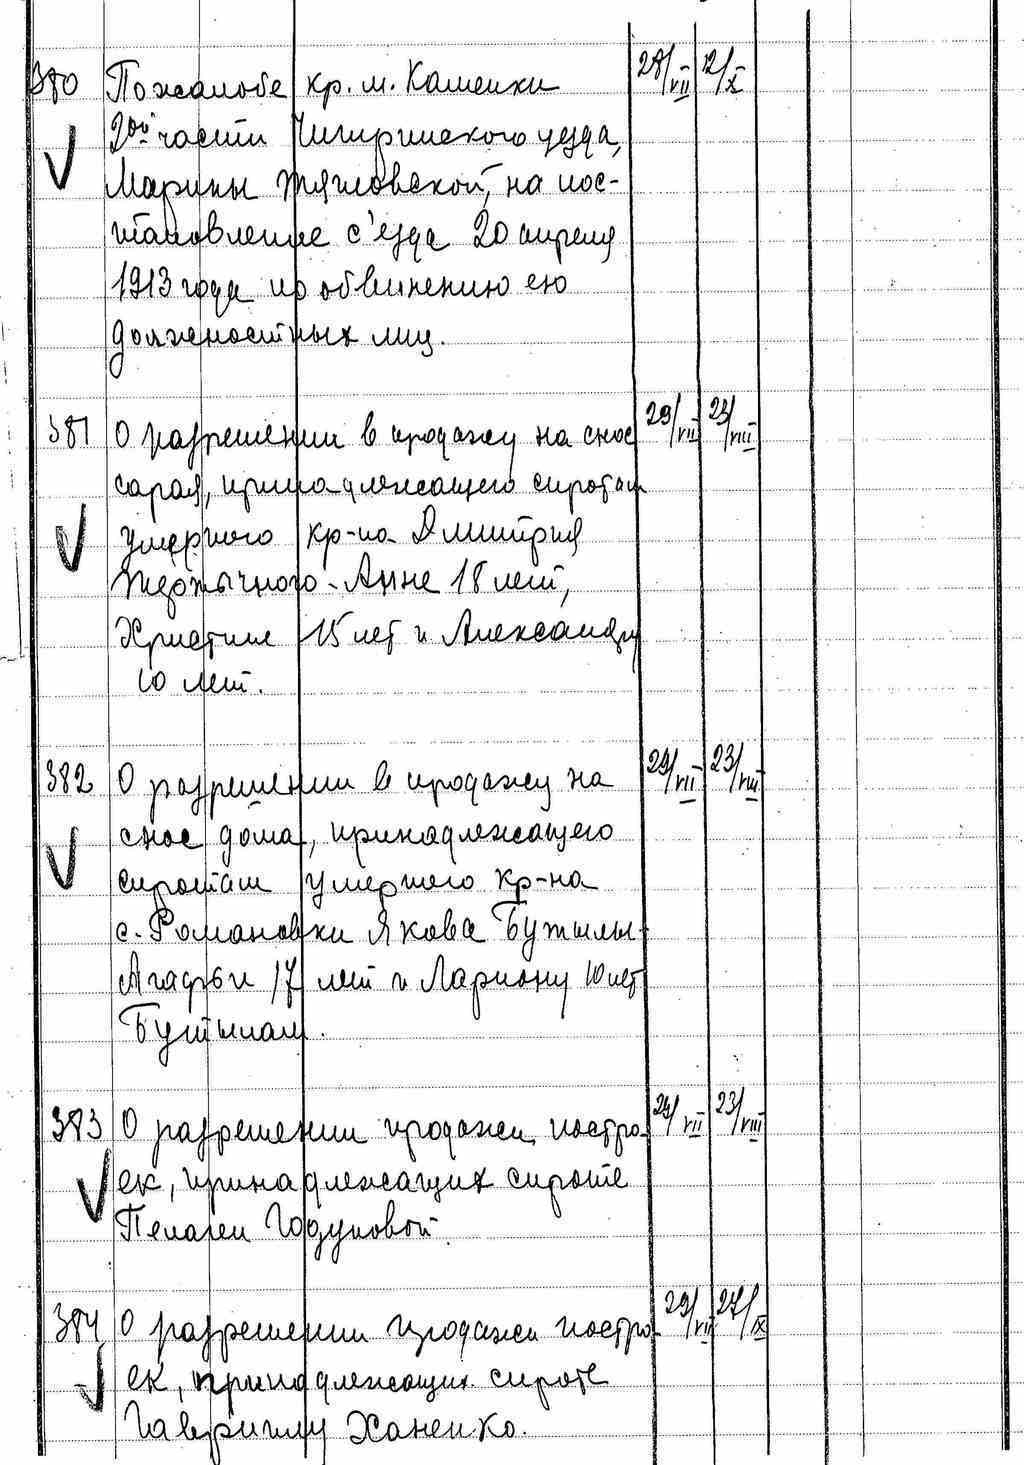 380 По жалобе кр. м. Каменки 28/VII 12/X
2ой части Чигиринского уезда,
Марины Тягловской, на пос-
тановление с'езда 20 апреля
1913 года по обвинению ею
должностных лиц.
381 О разрешении в продажу на снос 29/VII 23/VIII
сарая, принадлежащего сиротам
умершего кр-на Дмитрия
Анне 18 лет,
Христине 15 лет и Александру
10 лет.
382 О разрешении в продажу на 29/VII 23/VIII
снос дома, принадлежащего
сиротам умершего кр-на
с. Романовки Якова Бутылы-
Агафьи 17 лет и Лариону 10 лет
Бутылам.
383 О разрешении продажи постро- 29/VII 23/VIII
ек, принадлежащих сироте
Пелагеи Годуновой.
384 О разрешении продажи постро- 29/VII 27/IX
ек, принадлежащих сироте
Гавриилу Ханенко.